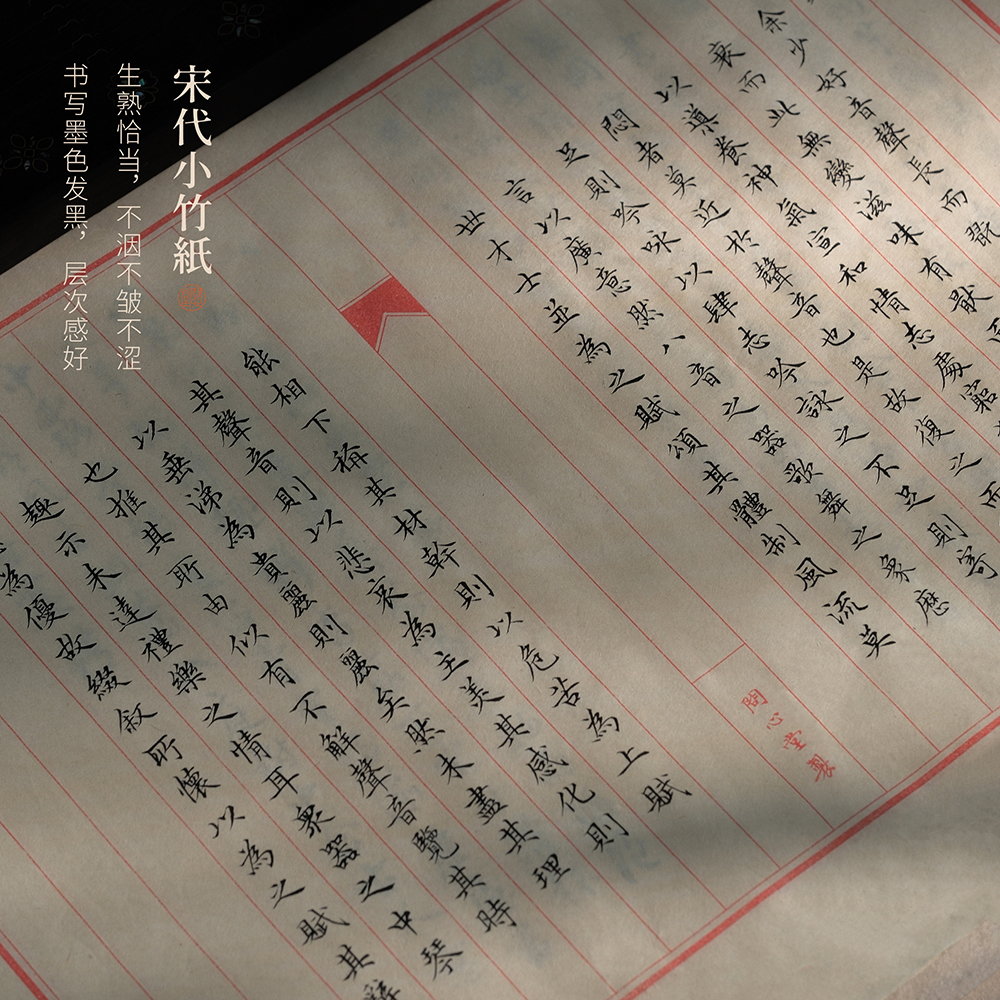 宋代小竹紙
生熟恰当，不洇不皱不涩
书写墨色发黑，层次感好
余少好音聲長而翫
衰而此無變滋味有猒
以導養神氣宣和情志處窮
悶者莫近於聲音也是故復之而
足則吟咏以肆志吟詠之不足則寄
言以廣意然八音之器歌舞之象歷
世才士並為之賦頌其體制風流莫
問心堂製
能相下稱其材幹則以危苦為上賦
其聲音則以悲哀為主美其感化則
以垂涕為貴麗則麗矣然未盡其理
也推其所由似有不解聲音覽其時
趣示未達禮樂之情耳衆器之中琴
為優故綴敘所懷以為之賦其辭